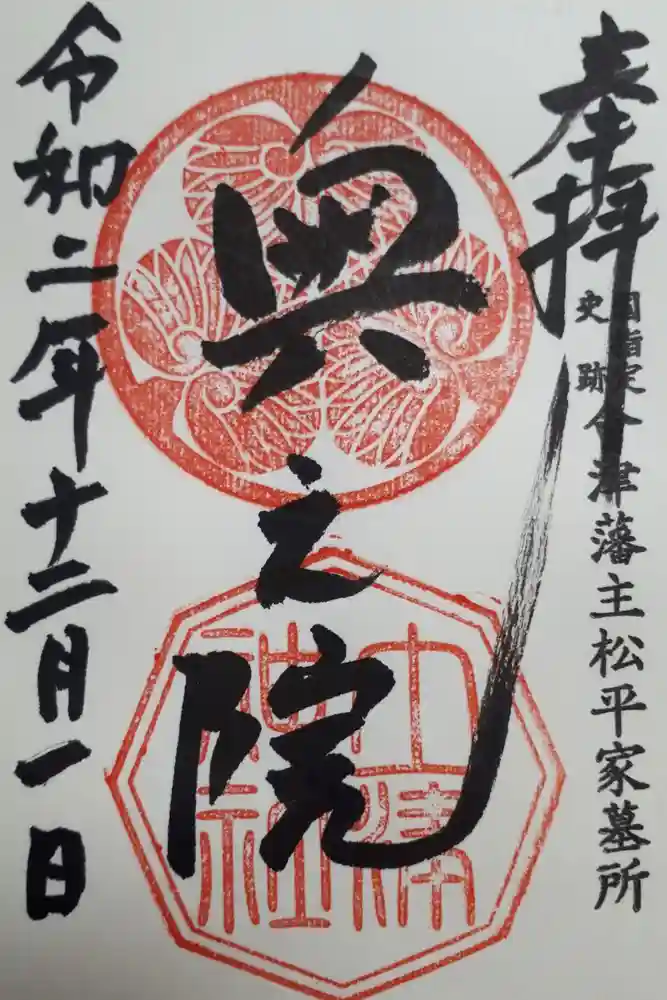 奉拝
国指定
史跡
会津藩主松平家墓所
奥之院
土津
神社
令和二年十二月一日